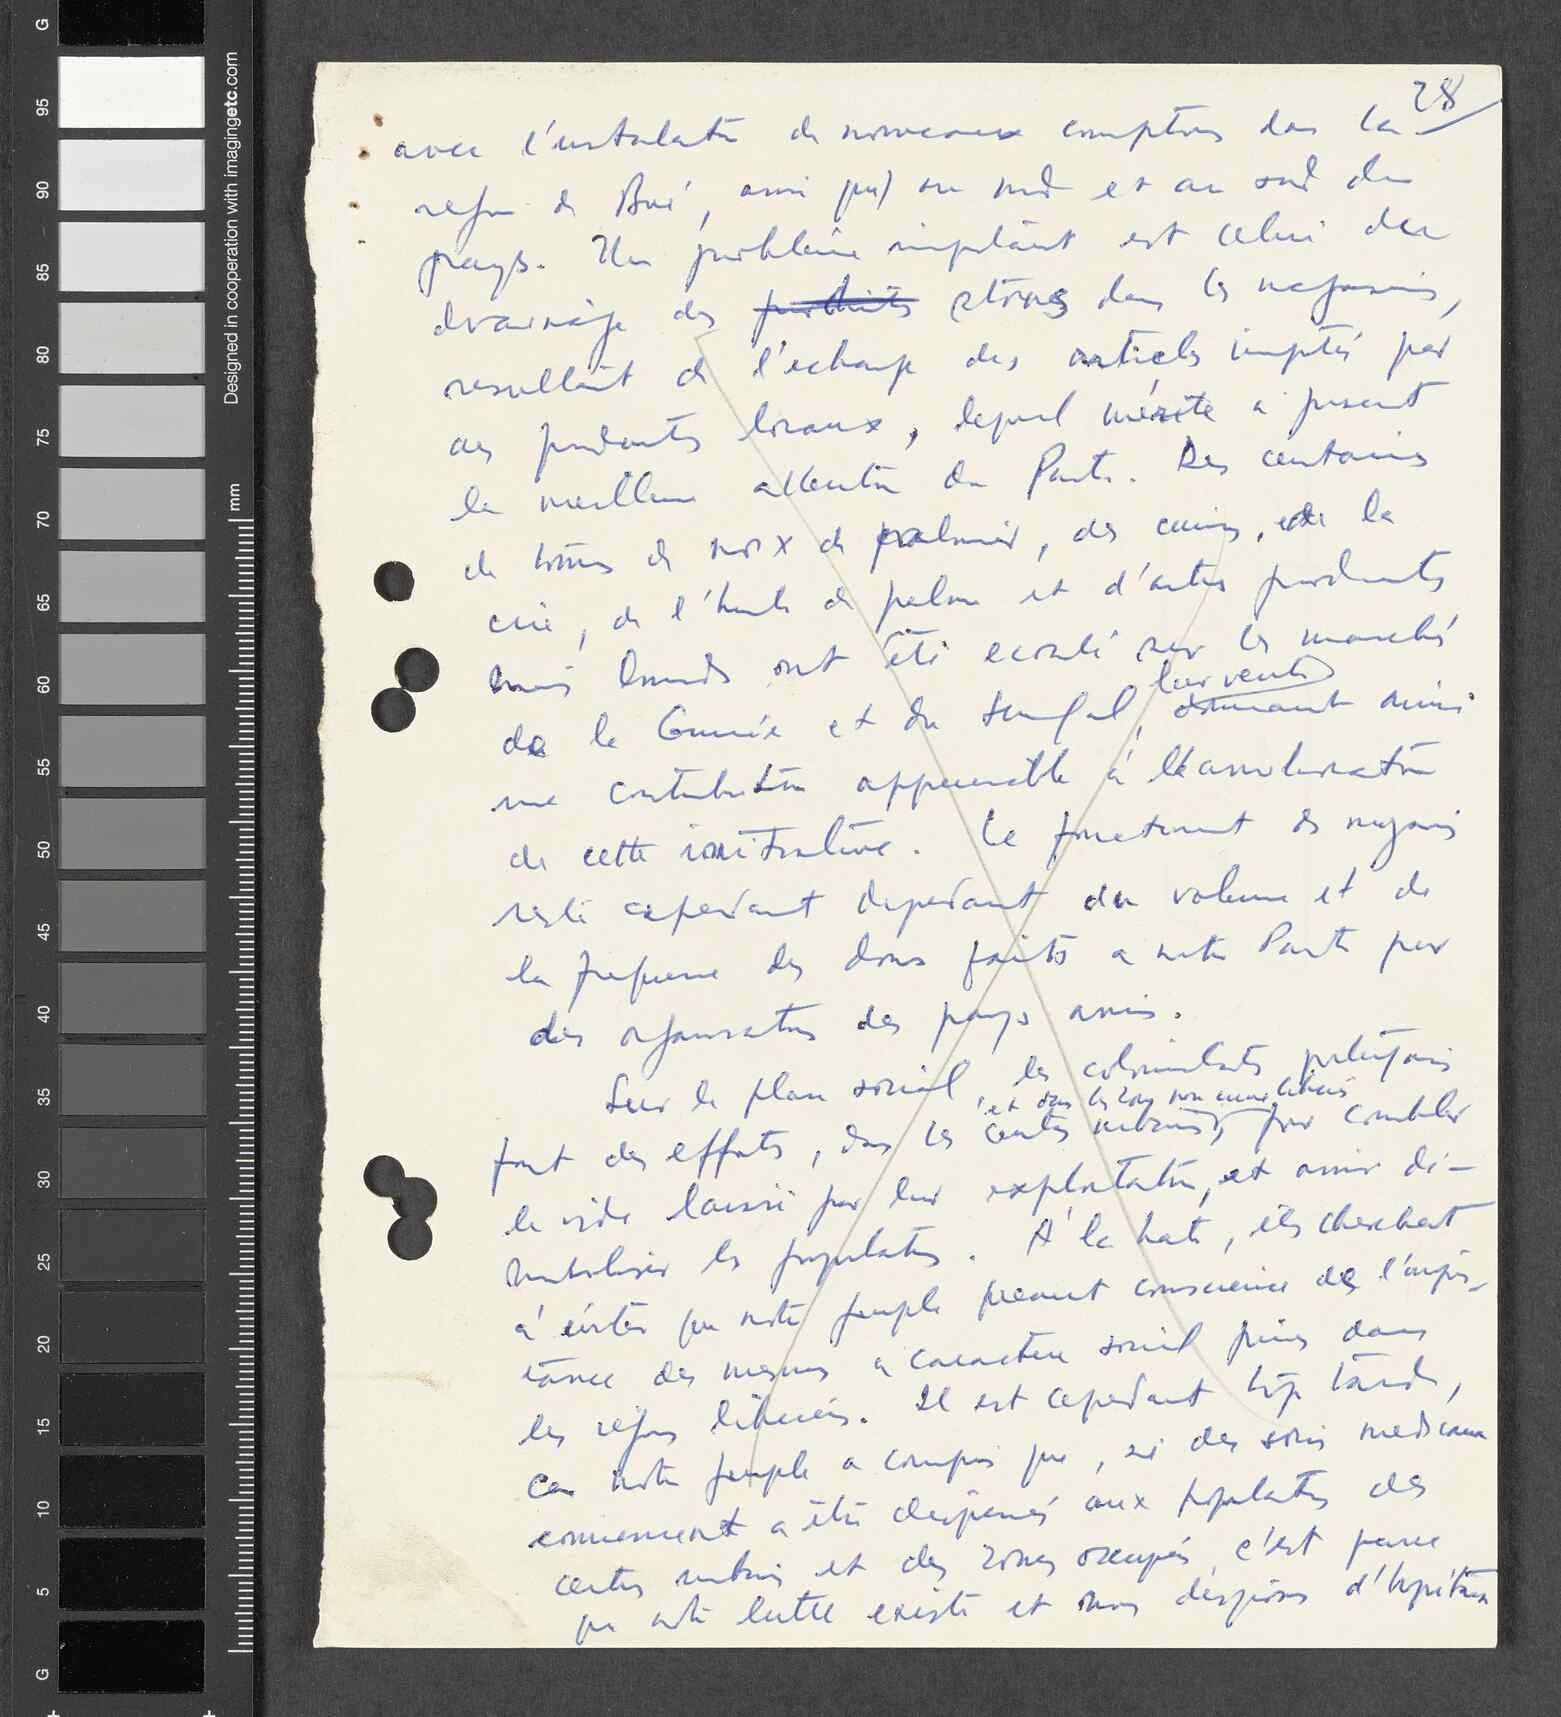 28
avec l'installation de nouveaux comptoirs dans la
région de Boé, ainsi qu'au nord et au sud du
pays. Un problème important est celui du
drainage des produits stoqués dans les magasins,
resultant de l'echange des articles importés par
des produits locaux, lequel mérite a present
la meilleure attention du Parti. Des centaines
de tonnes de noix de palmier, des cuirs, de la
cire, de l'huile de palme et d'autres produits
moins lourds ont été ecoulé sur les marchés
de la Guinée et du Senegal, leur vente donnant ainsi
une contribution appreciable à l'amelioration
de cette initiative. Le fonctionnement des magasins
reste cependant dependant du volume et de
la frequence des dons faits a notre Parti par
des organisations des pays amis.
Sur le plan social, les colonialistes portugais
font des efforts, dans les centres urbains et dans les zones non encore libérées, pour combler
le vide laissé par leur exploitation, et ainsi dé-
mobiliser les populations. A la hate, ils cherchent
à éviter que notre peuple prenne conscience de l'impor-
tance des mesures a caractère social prises dans
les régions libérées. Il est cependant trop tard,
car notre peuple a compris que, si des soins medicaux
commencent a être dispensés aux populations des
centres urbains et des zones occupés, c'est parce
que notre lutte existe et nous disposons d'hopitaux
Designed in cooperation with imagingetc.com
mm
G
95
90
85
80
75
70
65
60
55
50
45
40
35
30
25
20
15
10
5
G